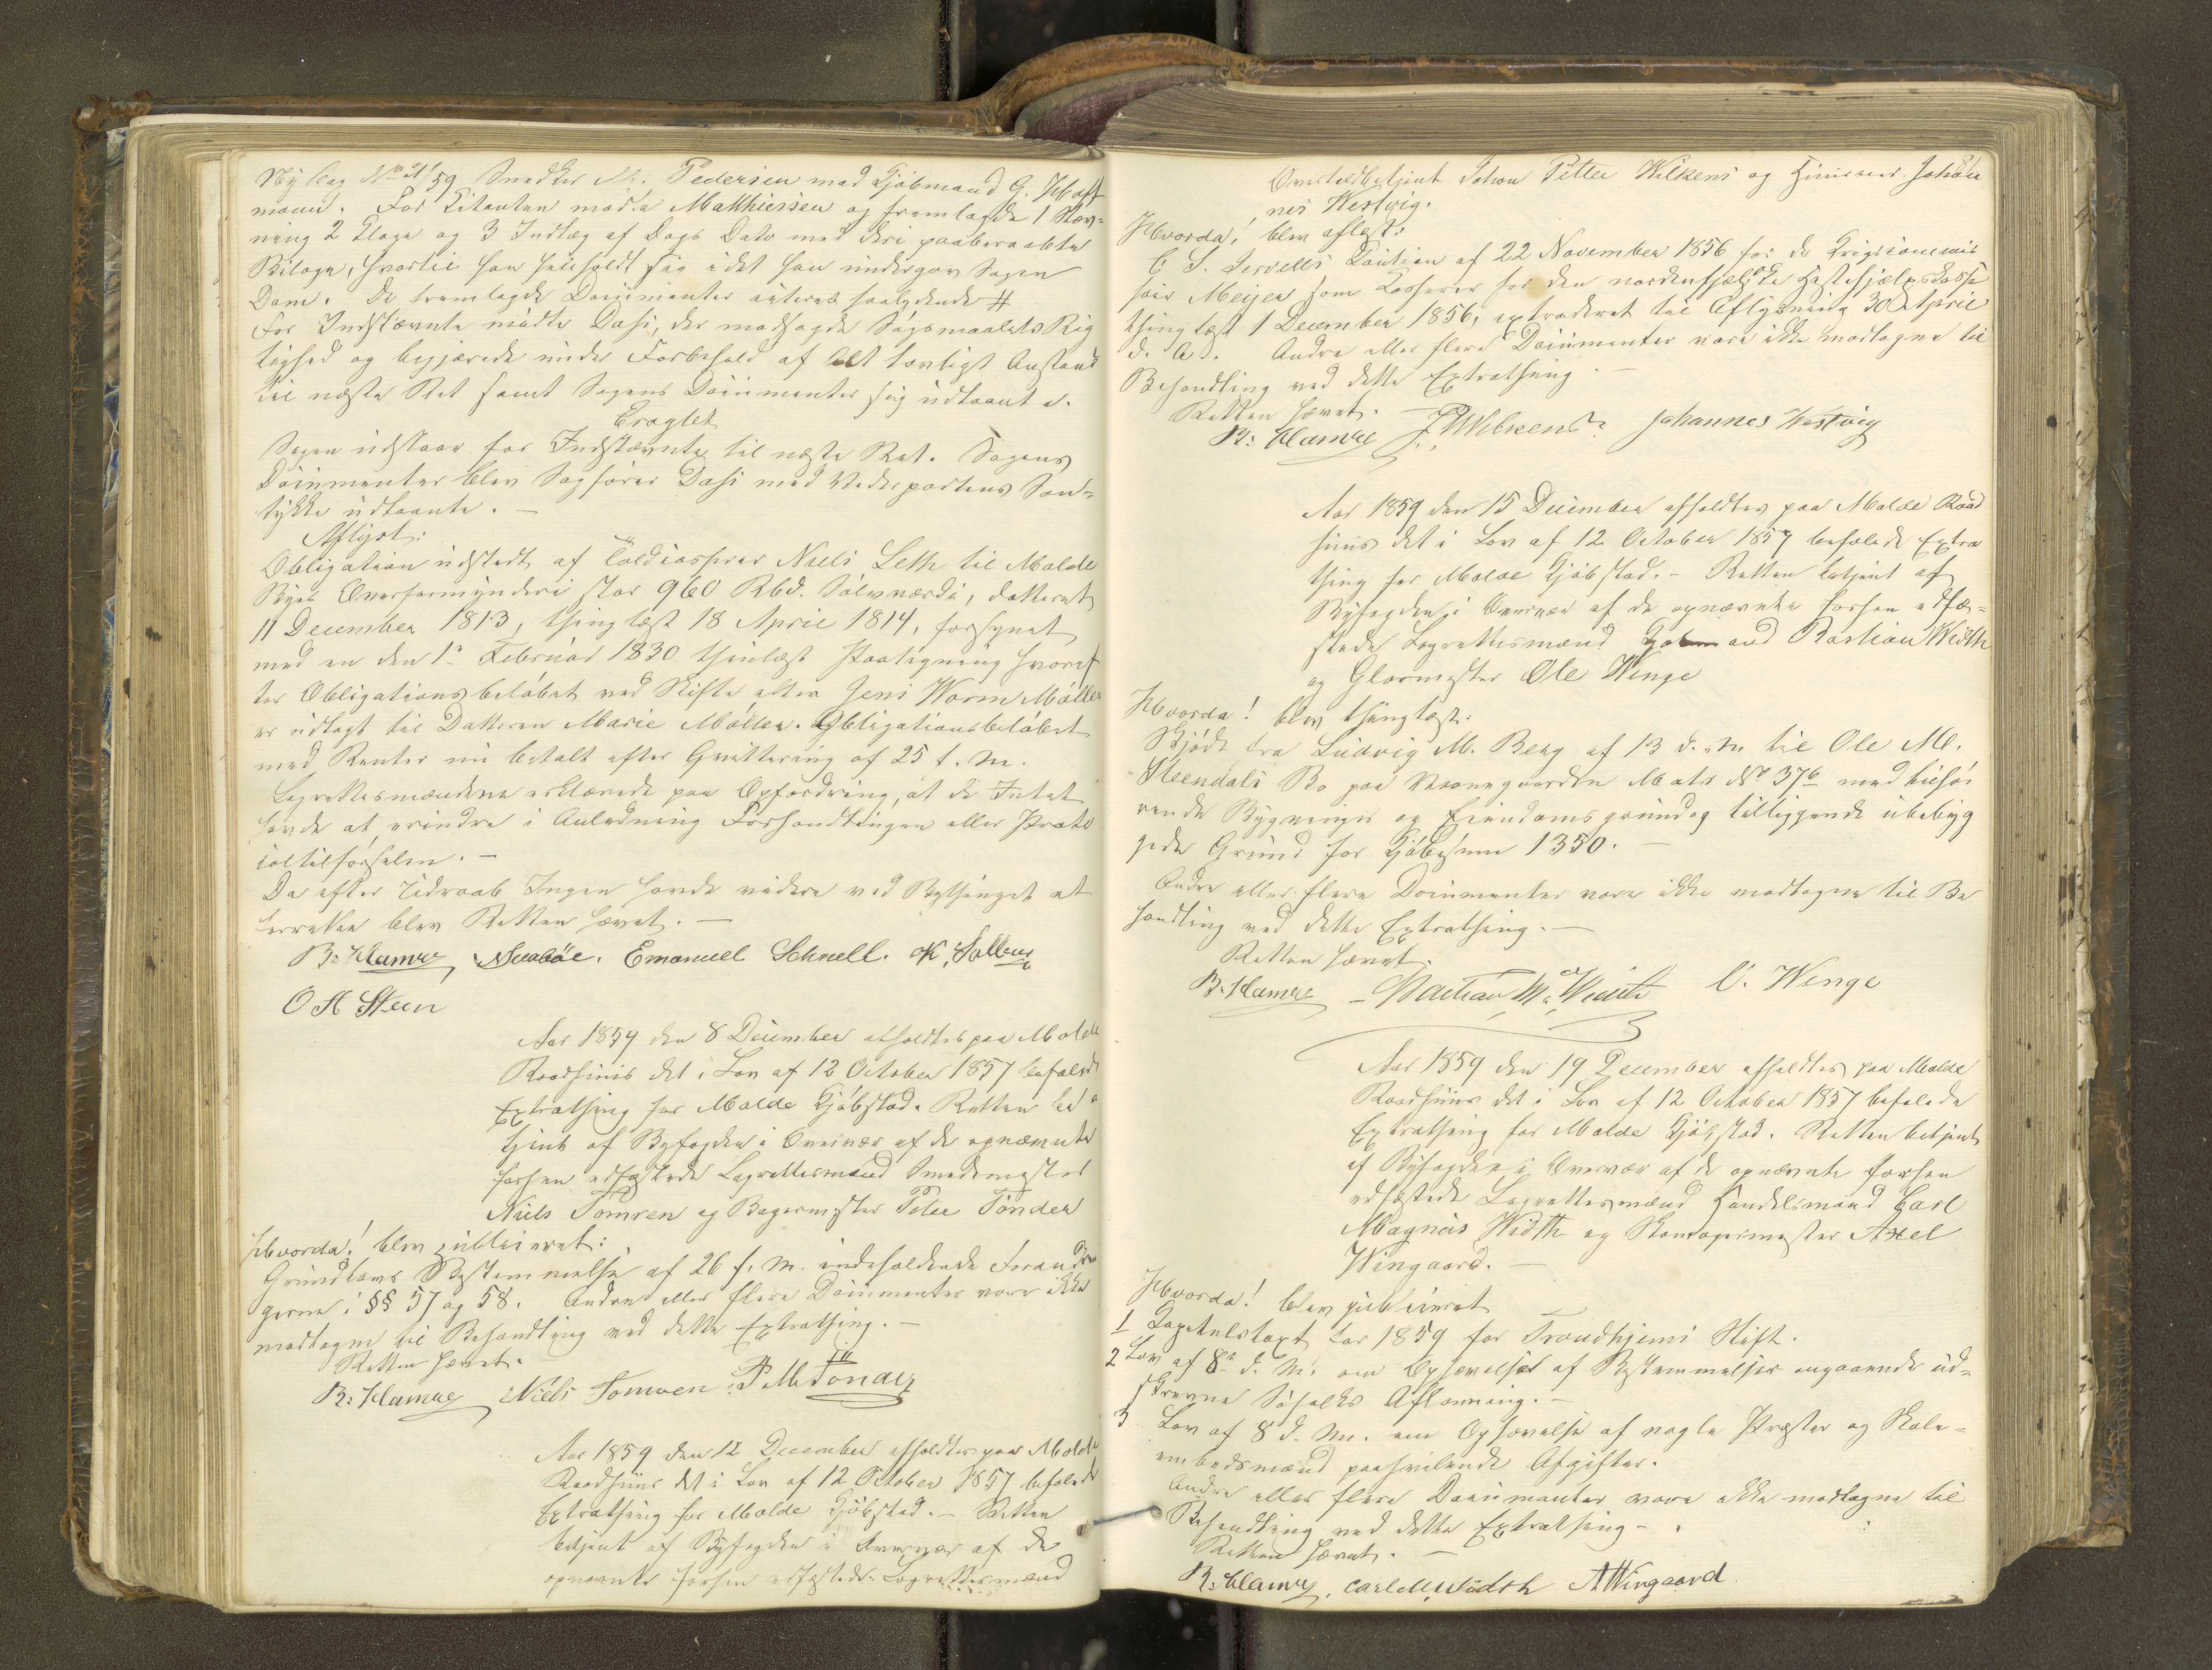 Ny Sag No 21/59 Snedker Pedersen mod Kjöbmand G. Hoff
mann. For Citanten mødte Matthiesen og fremlagde 1 Stev-
ning 2 Klage og 3 Indlæg af Dags Dato med deri paaberaabte
Bilage, hvortil han henholdt sig idet han undergav Sagen
Dom. De fremlagde Documenter acteres saalydende #
For Indstævnte mödte Dahl, der modsagde Sögsmaalets Rig
tighed og begjærede under Forbehold af alt lovligt Anstand
til næste Ret samt Sagens Documenter sig udlaante.
Eragtet
Sagen udstaar for Indstævnte til næste Ret. Sagens
Documenter blev Sagförer Dahl med Vederpartens Sam-
tykke udlaante. —
Aflyst:
Obligation udstedt af Toldkasserer Niels Leth til Molde
Byes Overformynderi stor 960 Rbd. Sölvværdi, datteret
11 December 1813, thinglæst 18 April 1814, forsynet
med en den 1ste Februar 1830 thinlæst Paategning hvoref
ter Obligationsbelöbet ved Skifte efter Jens Worm Möller
er udlagt til Datteren Marie Möller. Obligationsbelöbet
med Renter nu betalt efter Qvittering af 25 f. M.
Lagrettesmændene erklærede paa Opfordring, at de Intet
havde at erindre i Anledning Forhandlingen eller Proto
coltilförselen. —
Da efter Udraab Ingen havde videre ved Bythinget at
foretage blev Retten hævet. —
B: Hamre Emanuel Schnell. K. Sollem
O A Steen
Aar 1859 den 8 December afholdtes paa Molde
Raadhuus det i Lov af 12 October 1857 befalede
Extrathing for Molde Kjöbstad. Retten be-
tjent af Byfogden i Overvær af de opnævnte
forhen edfæstede Lagrettesmænd Smedemester
Niels Tomren og Bagermester Peter Tönder
Hvorda! blev publiceret:
Grundlovs Bestemmelse af 26 f. M. indeholdende Forandrin
gerne i §§ 57 og 58. Andre eller flere Documenter vare ikke
modtagne til Behandling ved dette Extrathing. —
Retten hævet.
B: Hamre Niels Tomren P. M. Tönder
Aar 1859 den 12 December afholdtes paa Molde
Raadhuus det i Lov af 12 October 1857 befalede
Extrathing for Molde Kjöbstad. — Retten
betjent af Byfogden i Overvær af de
opnævnte forhen edfæstede Lagrettesmænd
Overtoldbetjent Johan Petter Wilkens og Johan
nes Westvig.
Hvorda! blev aflæst:
Caution af 22 November 1856 for
Meijer som Kasserer for den nordenfjeldske
thinglæst 1 December 1856, extraderet til Aflysning 30 April
d. A. Andre eller flere Documenter vare ikke modtagne til
Behandling ved dette Extrathing. —
Retten hævet.
B: Hamre J P Wilkens Johannes Westvig
Aar 1859 den 15 December afholdtes paa Molde Raad
huus det i Lov af 12 October 1857 befalede Extra
thing for Molde Kjöbstad. — Retten betjent af
Byfogden i Overvær af de opnævnte forhen edfæ-
stede Lagrettesmænd Kjöbmand Bastian Width
og Glarmester Ole Winge
Hvorda! blev thinglæst:
Skjöde fra Ludvig M. Berg af 13 d. M. til Ole M.
Steendals Bo paa Matr No 37b med tilhö
rende Bygninger og Eiendomsgrund og tilliggende ubebyg
gede Grund for Kjöbesum 1350. —
Andre eller flere Documenter vare ikke modtagne til Be
handling ved dette Extrathing. —
Retten hævet.
B. Hamre Bastian M. Width O. Winge
Aar 1859 den 19 December afholdtes paa Molde
Raadhuus det i Lov af 12 October 1857 befalede
Extrathing for Molde Kjöbstad. Retten betjent
af Byfogden i Overvær af de opnævnte forhen
edfæstede Lagrettesmænd Handelsmand Carl
Magnus Width og Skomagermester Axel
Wingaard. —
Hvorda! blev publiceret
1 Kapitelstaxt for 1859 for Trondhjems Stift.
2 Lov af 8de d. M. om Ophævelse af Bestemmelser angaaende ud-
skrevne Söfolks Aflønning. —
3 Lov af 8 d. M. om Ophævelse af nogle Præster og Skole-
embedsmænd paahvilende Afgifter.
Andre eller flere Documenter vare ikke modtagne til
Behandling ved dette Extrathing. —
Retten hævet. —
B: Hamre. Carl M. Width A Wingaard